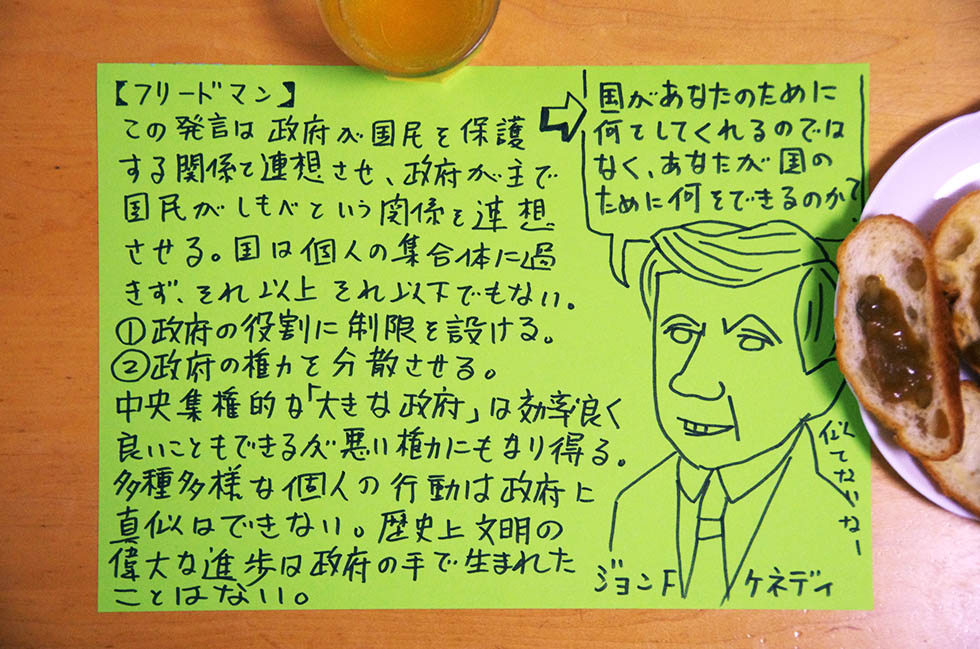 【フリードマン】
この発言は政府が国民を保護
する関係を連想させ、政府が主で
国民がしもべという関係を連想
させる。国は個人の集合体に過
きず、それ以上それ以下でもない。
①政府の役割に制限を設ける。
②政府の権力を分散させる。
中央集権的な「大きな政府」は効率良く
良いこともできるが悪い権力にもなり得る。
多種多様な個人の行動は政府に
真似はできない。歴史上文明の
偉大な進歩は政府の手で生まれた
ことはない。
国があなたのために
何をしてくれるのでは
なく、あなたが国の
ために何をできるのか?
似てないなー
ジョンF ケネディ